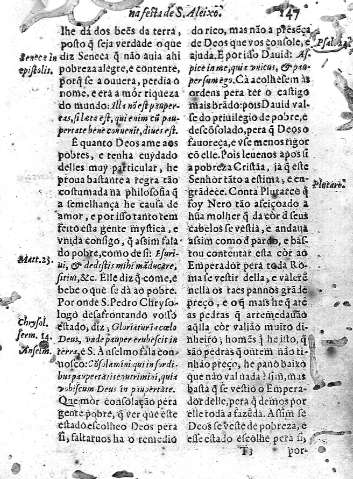 na festa de S. Aleixo.
147
lhe dá dos beẽs da terra,
posto q̃ seja verdade o que
diz Seneca q̃ não auia ahi
pobreza alegre, e contente,
porq̃ se a ouuera, perdia o
nome, e era a mór riqueza
do mundo: Illa nõ est pauper-
tas, si læta est, qui enim cũ pau-
pertate benè conuenit, diues est.
E quanto Deos ame aos
pobres, e tenha cuydado
delles muy particular, he
proua bastante a regra tão
costumada na philosofia q̃
a semelhança he causa de
amor, e por isso tanto tem
feito esta gente mystica, e
vnida consigo, q̃ assim fala
do pobre, como de si: Esuri-
ui, & dedistis mihi mãducare,
sitiui, &c. Elle diz q̃ come, e
bebe o que se dá ao pobre.
Por onde S. Pedro Chryso-
logo desafrontando vosso
estado, diz; Gloriatur in cælo
Deus, vnde pauper erubescit in
terra, e S. Anselmo fala con-
nosco: Cõsolamini qui in sordi-
bus paupertatis
Deus in paupertate.
Que mór consolação pera
gente pobre, q̃ ver que este
estado escolheo Deos pera
si, faltaruos ha o remedio
Seneca in
epistolis.
Matt. 25.
Chrysol.
serm. 14.
Anselm.
do rico, mas não a presẽça
de Deos que vos console, e
ajuda. E por isso Dauid:
Cà acolhesem às
ordens pera ter o castigo
mais brãdo: pois Dauid val-
se do priuilegio de pobre, e
descõsolado, pera q̃ Deos o
fauoreça, e vse menos rigor
cõ elle. Pois leuenos apos si
a pobreza Cristãa, já q̃ este
Senhor tãto a estima, e en-
grãdece. Conta Plutarco q̃
foy Nero tão afeiçoado a
hũa molher q̃ da côr de seus
cabelos se vestia, e andaua
assim como d pardo, e bas-
tou contentar esta côr ao
Emperador pera toda Ro-
ma se vestir della, e valerẽ
nella os taes pannos grãde
preço, e o q̃ mais he q̃ atè
as pedras q̃ arremedasão
aq̃lla côr valião muito di-
nheiro; homẽs q̃ he isto, q̃
são pedras q̃ ontem não ti-
nhão preço, he pano baixo
que não val nada? sim, mas
basta q̃ se vestio o Empera-
dor delle, pera q̃ demos por
elle toda a fazẽda. Assim se
Deos se veste de pobreza, e
esse estado escolhe pera si,
Psal. 24.
Plutarc.
T3
por-